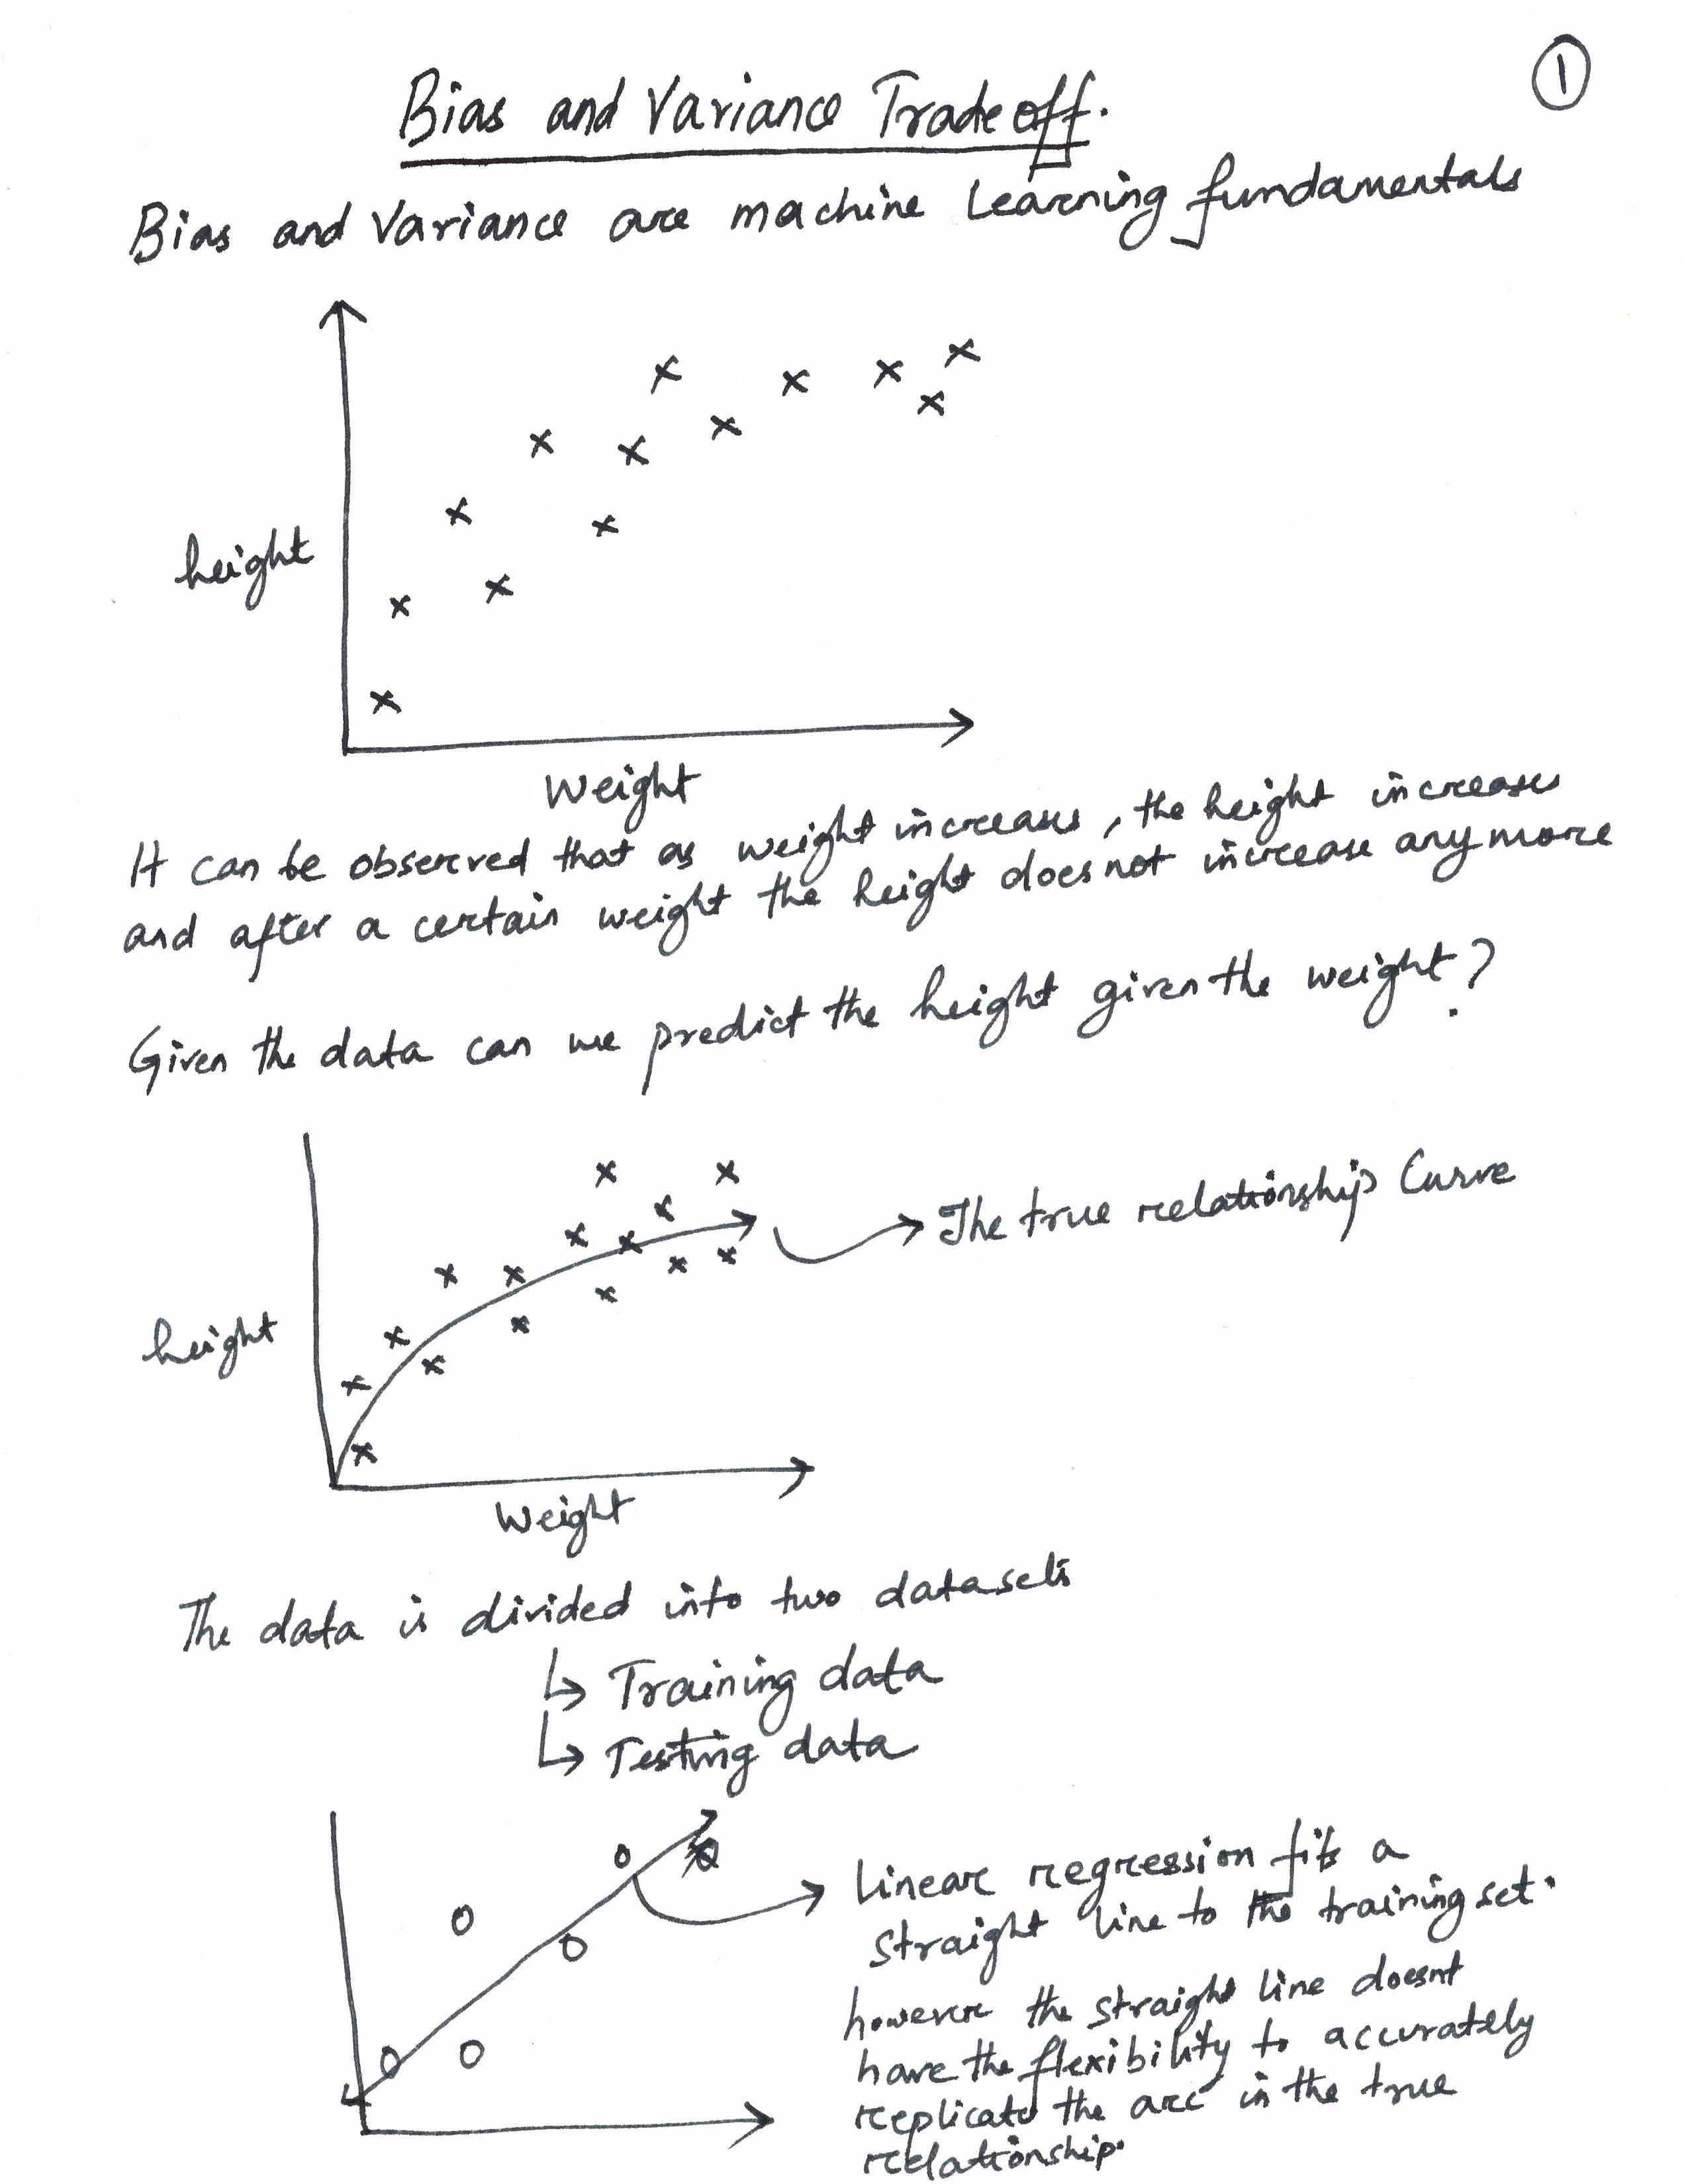 1
Bias and Variance Tradeoff.
Bias and Variance are machine learning fundamentals
height
Weight
It can be observed that as weight increases, the height increases
and after a certain weight the height does not increase anymore
Given the data can we predict the height given the weight?
The true relationship Curve
height
Weight
The data is divided into two datasets
↳ Training data
↳ Testing data
linear regression fits a
straight line to the training set.
however the straight line doesnt
have the flexibility to accurately
replicate the arc in the true
relationship.